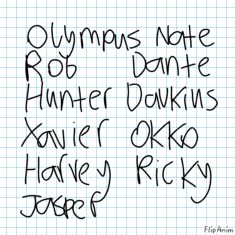 Olympus Nate
Rob Dante
Hunter Dawkins
Xavier OKKO
Harvey Ricky
Jasper
FlipAnim